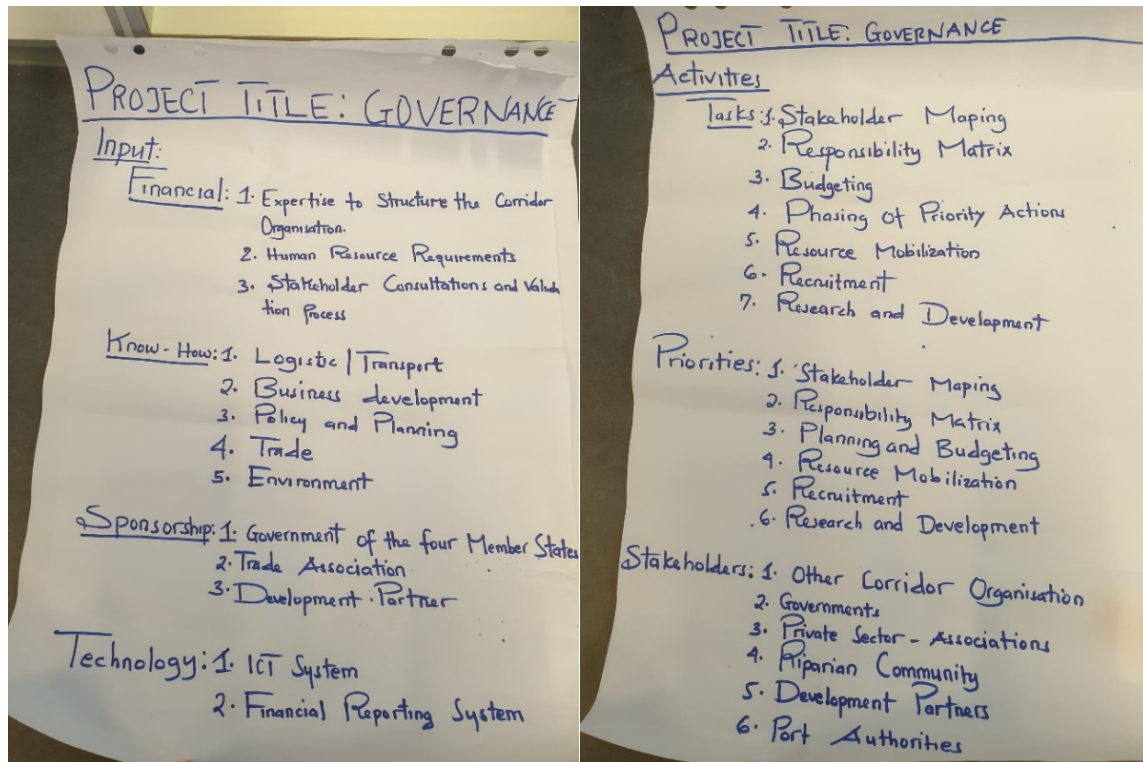 PROJECT TITLE: GOVERNANCE
Input:
Financial: 1. Expertise to Structure the Corridor
Organisation.
2. Human Resource Requirements
3. Stakeholder Consultations and Valida
tion Process
Know-How: 1. Logistic | Transport
2. Business development
3. Policy and Planning
4. Trade
5. Environment
Sponsorship: 1. Government of the four Member States
2. Trade Association
3. Development Partner
Technology: 1. ICT System
2. Financial Reporting System
PROJECT TITLE: GOVERNANCE
Activities
Tasks: 1. Stakeholder Maping
2. Responsibility Matrix
3. Budgeting
4. Phasing of Priority Actions
5. Resource Mobilization
6. Recruitment
7. Research and Development
Priorities: 1. Stakeholder Maping
2. Responsibility Matrix
3. Planning and Budgeting
4. Resource Mobilization
5. Recruitment
6. Research and Development
Stakeholders: 1. Other Corridor Organisation
2. Governments
3. Private Sector - Associations
4. Riparian Community
5. Development Partners
6. Port Authorities